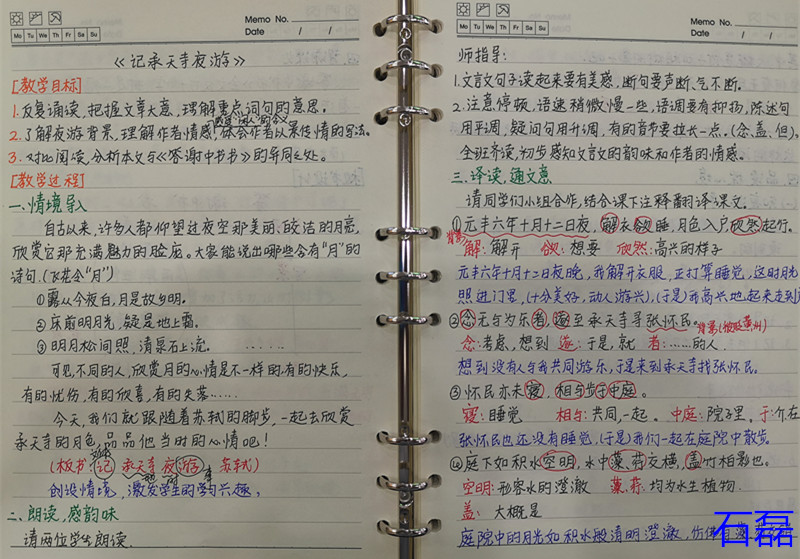 Memo No.
Mo Tu We Th Fr Sa Su
Date / /
《记承天寺夜游》
[教学目标]
1.反复诵读,把握文章大意,理解重点词句的意思。
2.了解夜游背景,理解作者情感,体会作者以景传情的写法。
3.对比阅读,分析本文与《答谢中书书》的异同之处。
[教学过程]
一、情境导入
自古以来,许多人都仰望过夜空那美丽、皎洁的月亮,
欣赏它那充满魅力的脸庞。大家能说出哪些含有“月”的
诗句.(飞花令“月”)
①露从今夜白,月是故乡明。
②床前明月光,疑是地上霜。
③明月松间照,清泉石上流。 ......
可见,不同的人,欣赏月的心情是不一样的.有的快乐,
有的忧伤,有的欣喜,有的失落......
今天,我们就跟随着苏轼的脚步,一起去欣赏
承天寺的月色,品品他当时的心情吧!
(板书 记 承天寺 夜 游 苏轼)
创设情境,激发学生的学习兴趣;
二、朗读,感韵味
请两位学生朗读.
Memo No.
Mo Tu We Th Fr Sa Su
Date / /
师指导:
1.文言文句子读起来要有美感,断句要声断、气不断。
2.注意停顿,语速稍微慢一些,语调要有抑扬,陈述句
用平调,疑问句用升调,有的音节要拉长一点。(念、盖、但)。
全班齐读,初步感知文言文的韵味和作者的情感。
三.译读,通文意
请同学们小组合作,结合课下注释翻译课文.
①元丰六年十月十二日夜,解衣欲睡,月色入户,欣然起行。
背景
解:解开 欲:想要 欣然:高兴的样子
元丰六年十月十二日夜晚,我解开衣服,正打算睡觉,这时月光
照进门里,(十分美好,动人游兴),(于是)我高兴地起来走到
②念无与为乐者,遂至承天寺寻张怀民。
念:考虑,想到 遂:于是,就 者:......的人
想到没有人与我共同游乐,于是来到承天寺找张怀民。
③怀民亦未寝,相与步于中庭。
寝:睡觉 相与:共同,一起。 中庭:院子里. 于:介在
张怀民也还没有睡觉,(于是)我们一起在庭院中散步.
④庭下如积水空明,水中藻、荇交横,盖竹柏影也。
空明:形容水的澄澈 藻、荇:均为水生植物.
盖:大概是
庭院中的月光如积水般清明澄澈,仿佛有
石磊